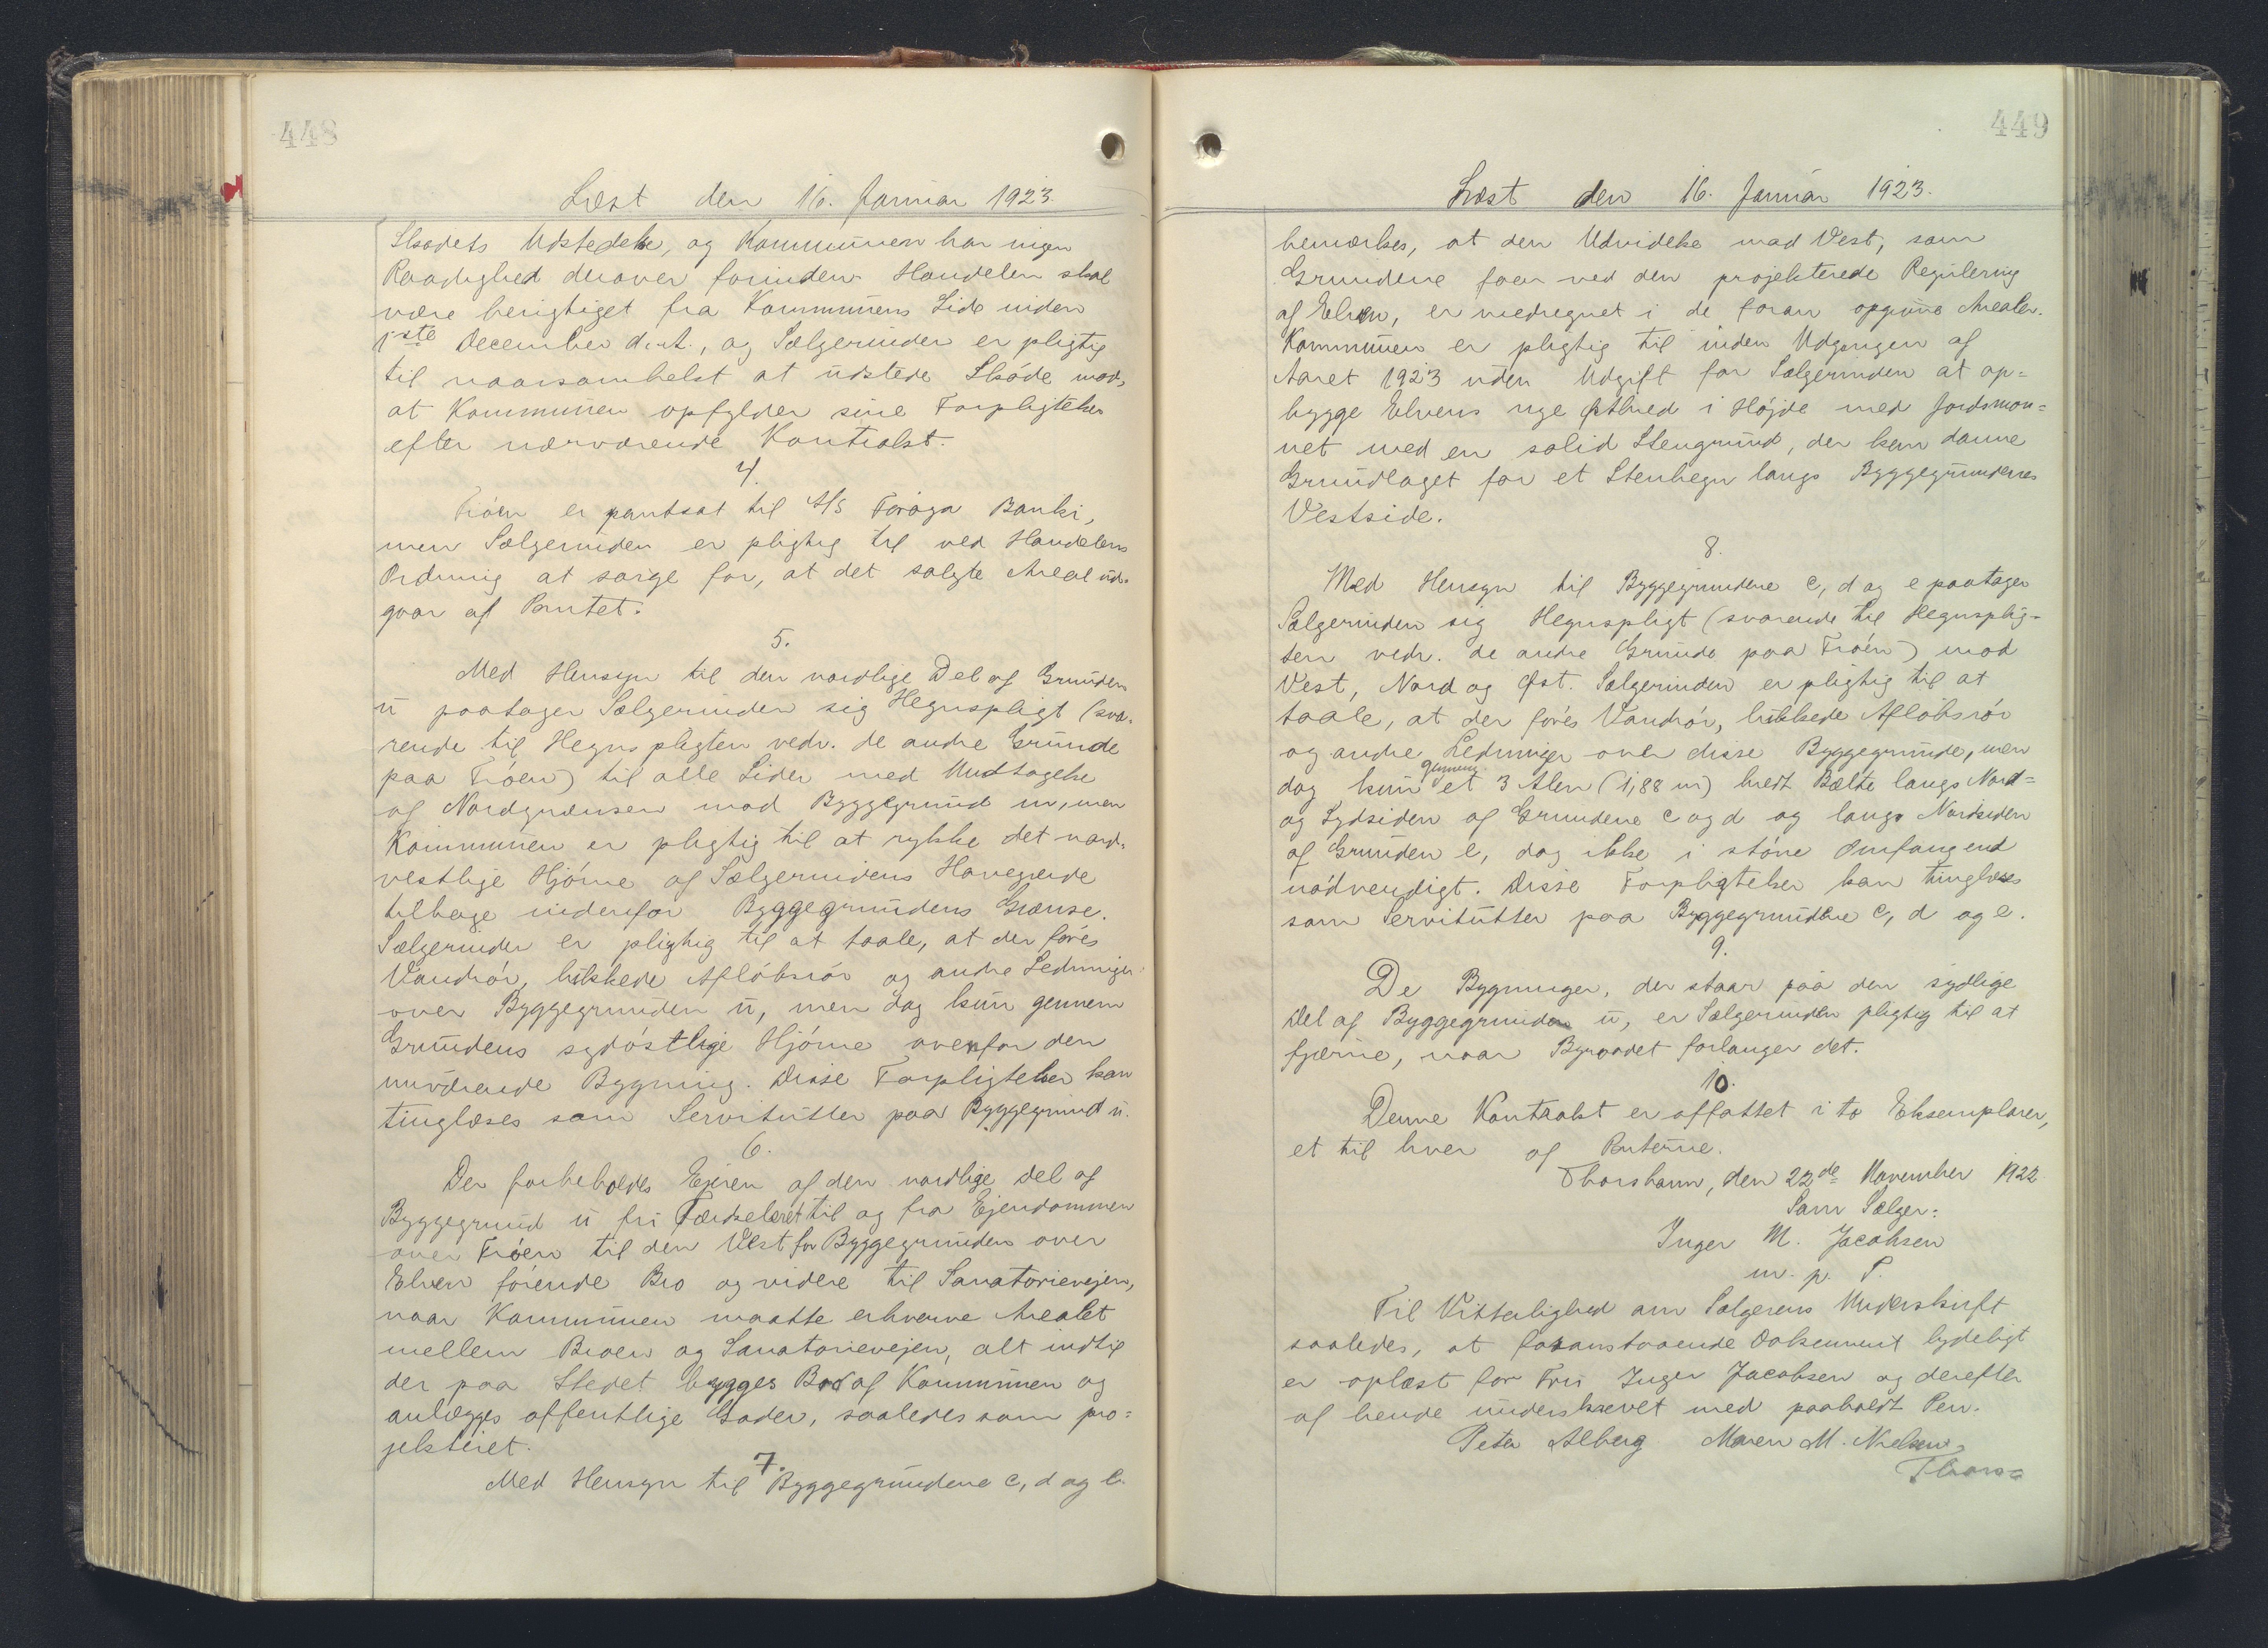 448
Læst den 16. Januar 1923.
Skødets Udstedelse, og Kommunen har ingen
Raadighed derover forinden. Handelen skal
være berigtiget fra Kommunens Side inden
1ste December d. A., og Sælgerinden er pligtig
til naarsomhelst at udstede Skøde mod,
at Kommunen opfylder sine Forpligtelser
efter nærværende Kontrakt.
4.
Trøen er pantsat til A/S Føroya Banki,
men Sælgerinden er pligtig til ved Handelens
Ordning at sørge for, at det solgte Areal ud-
gaar af Pantet.
5.
Med Hensyn til den nordlige Del af Grunden
u paatager Sælgerinden sig Hegnspligt (sva-
rende til Hegnspligten vedr. de andre Grunde
paa Trøen) til alle Sider med Undtagelse
af Nordgrænsen mod Byggegrund m, men
Kommunen er pligtig til at rykke det nord-
vestlige Hjørne af Sælgerindens Havegærde
tilbage indenfor Byggegrundens Grænse.
Sælgerinden er pligtig til at taale, at der føres
Vandrør, lukkede Afløbsrør og andre Ledninger
over Byggegrunden u, men dog kun gennem
Grundens sydøstlige Hjørne ovenfor den
nuværende Bygning. Disse Forpligtelser kan
tinglæses som Servitutter paa Byggegrund u.
6.
Der forbeholdes Ejeren af den nordlige Del af
Byggegrund u fri Færdselsret til og fra Ejendommen
over Trøen til den Vest for Byggegrunden over
Elven førende Bro og videre til Sanatorievejen,
naar Kommunen maatte erhverve Arealet
mellem Broen og Sanatorievejen, alt indtil
der paa Stedet bygges Bro af Kommunen og
anlægges offentlige Gader, saaledes som pro=
jekteret.
7.
Med Hensyn til Byggegrundene c, d og e.
449
Læst den 16. Januar 1923.
bemærkes, at den Udvidelse mod Vest, som
Grundene faar ved den projekterede Regulering
af Elven, er medregnet i de foran opgivne Arealer.
Kommunen er pligtig til inden Udgangen af
Aaret 1923 uden Udgift for Sælgerinden at op=
bygge Elvens nye Østbred i Højde med Jordsmon=
net med en solid Stengrund, der kan danne
Grundlaget for et Stenhegn langs Byggegrundenes
Vestside.
8.
Med Hensyn til Byggegrundene c, d og e paatager
Sælgerinden sig Hegnspligt (svarende til Hegnsplig-
ten vedr. de andre Grunde paa Trøen) mod
Vest, Nord og Øst. Sælgerinden er pligtig til at
taale, at der føres Vandrør, lukkede Afløbsrør
og andre Ledninger over disse Byggegrunde, men
dog kun gennem et 3 Alen (1,88 m) bredt Bælte langs Nord=
og Sydsiden af Grundene c og d og langs Nordsiden
af Grunden e, dog ikke i større Omfang end
nødvendigt. Disse Forpligtelser kan tinglæses
som Servitutter paa Byggegrundene c, d og e.
9.
De Bygninger, der staar paa den sydlige
Del af Byggegrunden u, er Sælgerinden pligtig til at
fjerne, naar Byraadet forlanger det.
10.
Denne Kontrakt er affattet i to Eksemplarer,
et til hver af Parterne.
Thorshavn, den 22de November 1922.
Som Sælger:
Inger M. Jacobsen
m. p. P.
Til Vitterlighed om Sælgerens Underskrift
saaledes, at foranstaaende Dokument tydeligt
er oplæst for Fru Inger Jacobsen og derefter
af hende underskrevet med paaholdt Pen.
Peter Alberg Maren M. Nielsen
Thors=